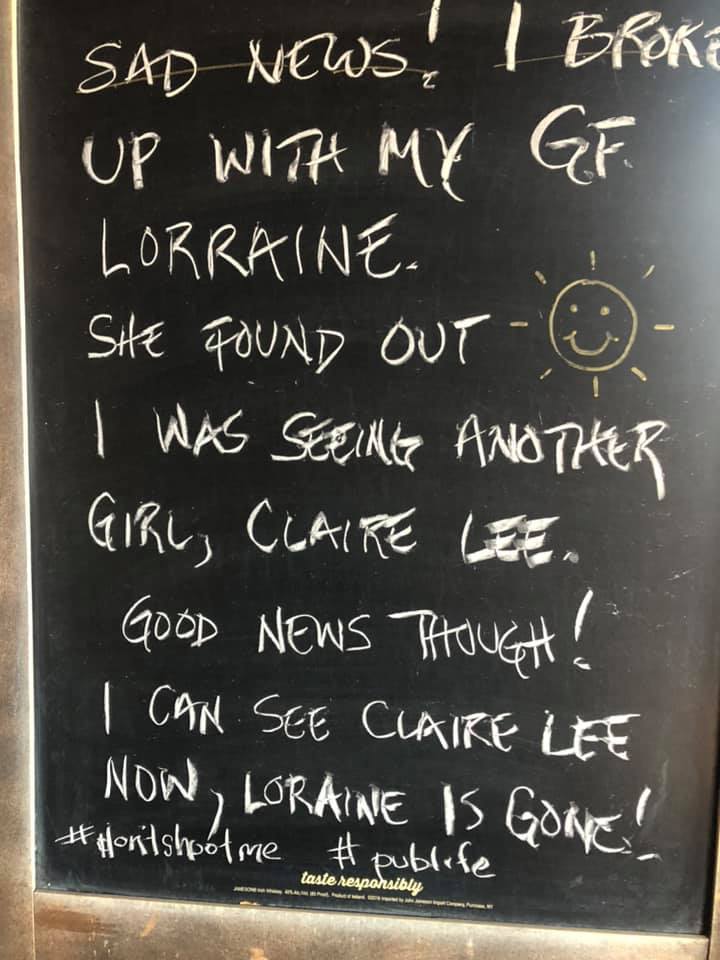 SAD NEWS! I BROKE
UP WITH MY GF
LORRAINE.
SHE FOUND OUT
I WAS SEEING ANOTHER
GIRL, CLAIRE LEE.
GOOD NEWS THOUGH!
I CAN SEE CLAIRE LEE
NOW, LORAINE IS GONE!
#dontshootme #publife
taste responsibly